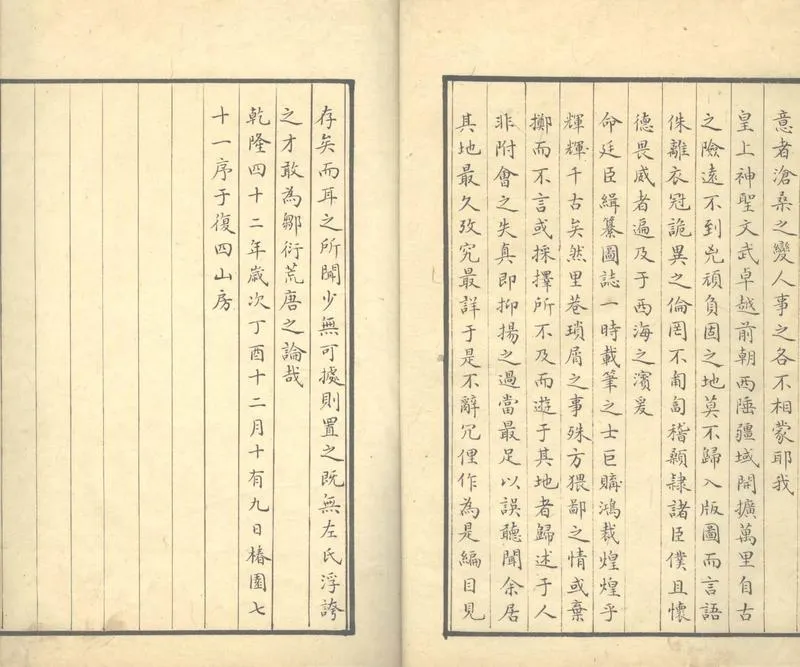 意者滄桑之變人事之各不相蒙耶我
皇上神聖文武卓越前朝西陲疆域開擴萬里自古
之險遠不到兇頑負固之地莫不歸入版圖而言語
侏離衣冠詭異之倫罔不匍匐稽顙隸諸臣僕且懷
德畏威者遍及于西海之濱爰
命廷臣緝纂圖誌一時載筆之士巨購鴻裁煌煌乎
輝輝千古矣然里巷瑣屑之事殊方猥鄙之情或棄
擲而不言或採擇所不及而遊于其地者歸述于人
非附會之失真即抑揚之過當最足以誤聽聞余居
其地最久攷究最詳于是不辭冗俚作為是編目見
存矣而耳之所聞少無可據則置之既無左氏浮誇
之才敢為鄒衍荒唐之論哉
乾隆四十二年歲次丁酉十二月十有九日椿園七
十一序于復四山房